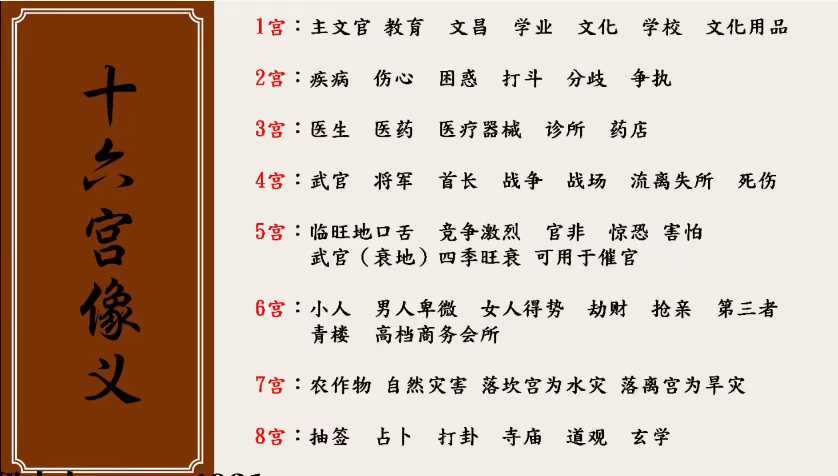 十六宫像义
1宫：主文官 教育 文昌 学业 文化 学校 文化用品
2宫：疾病 伤心 困惑 打斗 分歧 争执
3宫：医生 医药 医疗器械 诊所 药店
4宫：武官 将军 首长 战争 战场 流离失所 死伤
5宫：临旺地口舌 竞争激烈 官非 惊恐 害怕
武官（衰地）四季旺衰 可用于催官
6宫：小人 男人卑微 女人得势 劫财 抢亲 第三者
青楼 高档商务会所
7宫：农作物 自然灾害 落坎宫为水灾 落离宫为旱灾
8宫：抽签 占卜 打卦 寺庙 道观 玄学